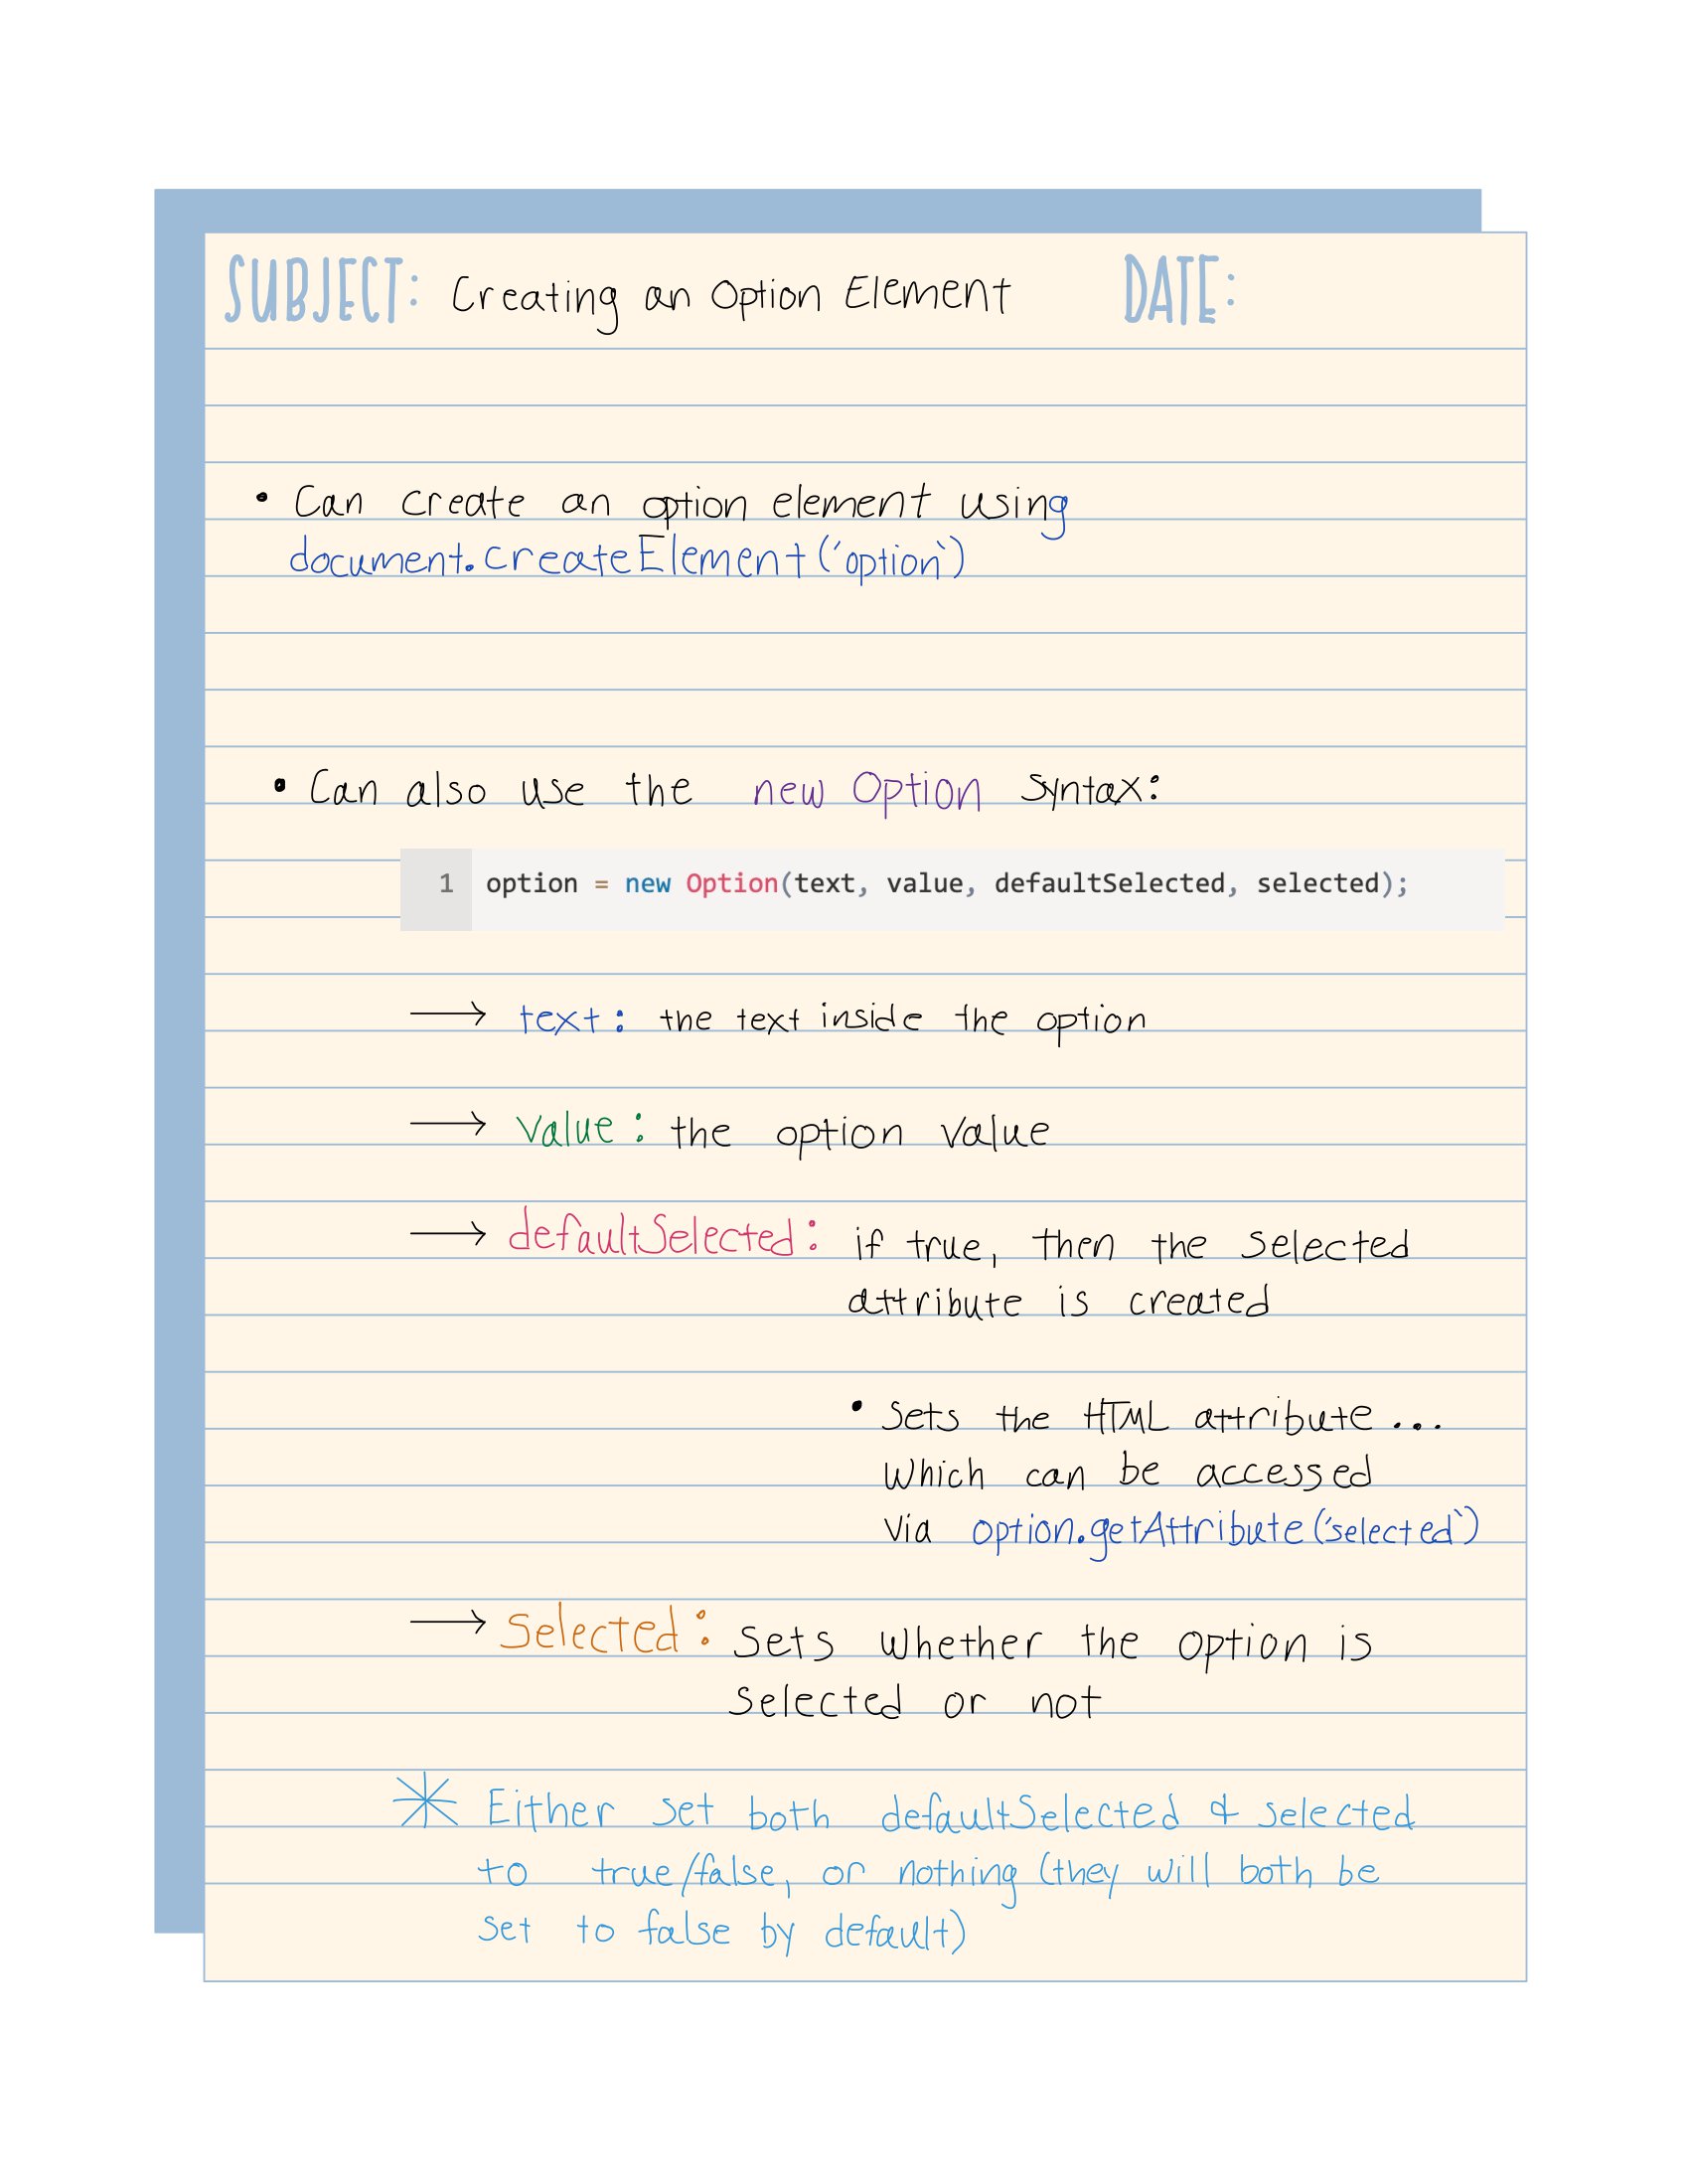 SUBJECT: Creating an Option Element DATE:
• Can create an option element using
document.createElement('option')
• Can also use the new Option syntax:
1 option = new Option(text, value, defaultSelected, selected);
→ text: the text inside the option
→ value: the option value
→ defaultSelected: if true, then the selected
attribute is created
• Sets the HTML attribute...
which can be accessed
via option.getAttribute('selected')
→ selected: sets whether the option is
selected or not
* Either set both defaultSelected & selected
to true/false, or nothing (they will both be
set to false by default)